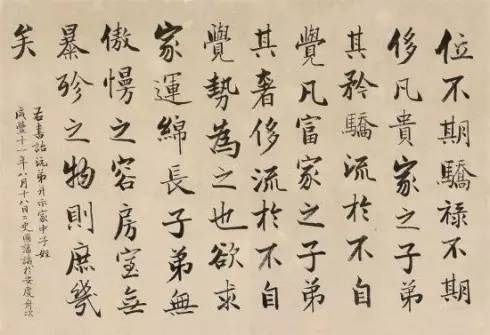 位不期驕祿不期
侈凡貴家之子弟
其矜驕流於不自
覺凡富家之子弟
其奢侈流於不自
覺勢為之也欲求
家運綿長子弟無
傲慢之容房室無
暴殄之物則庶幾
矣
書詒沅弟并示家中子姪
咸豐十一年八月十八日二更國藩識於安慶舟次